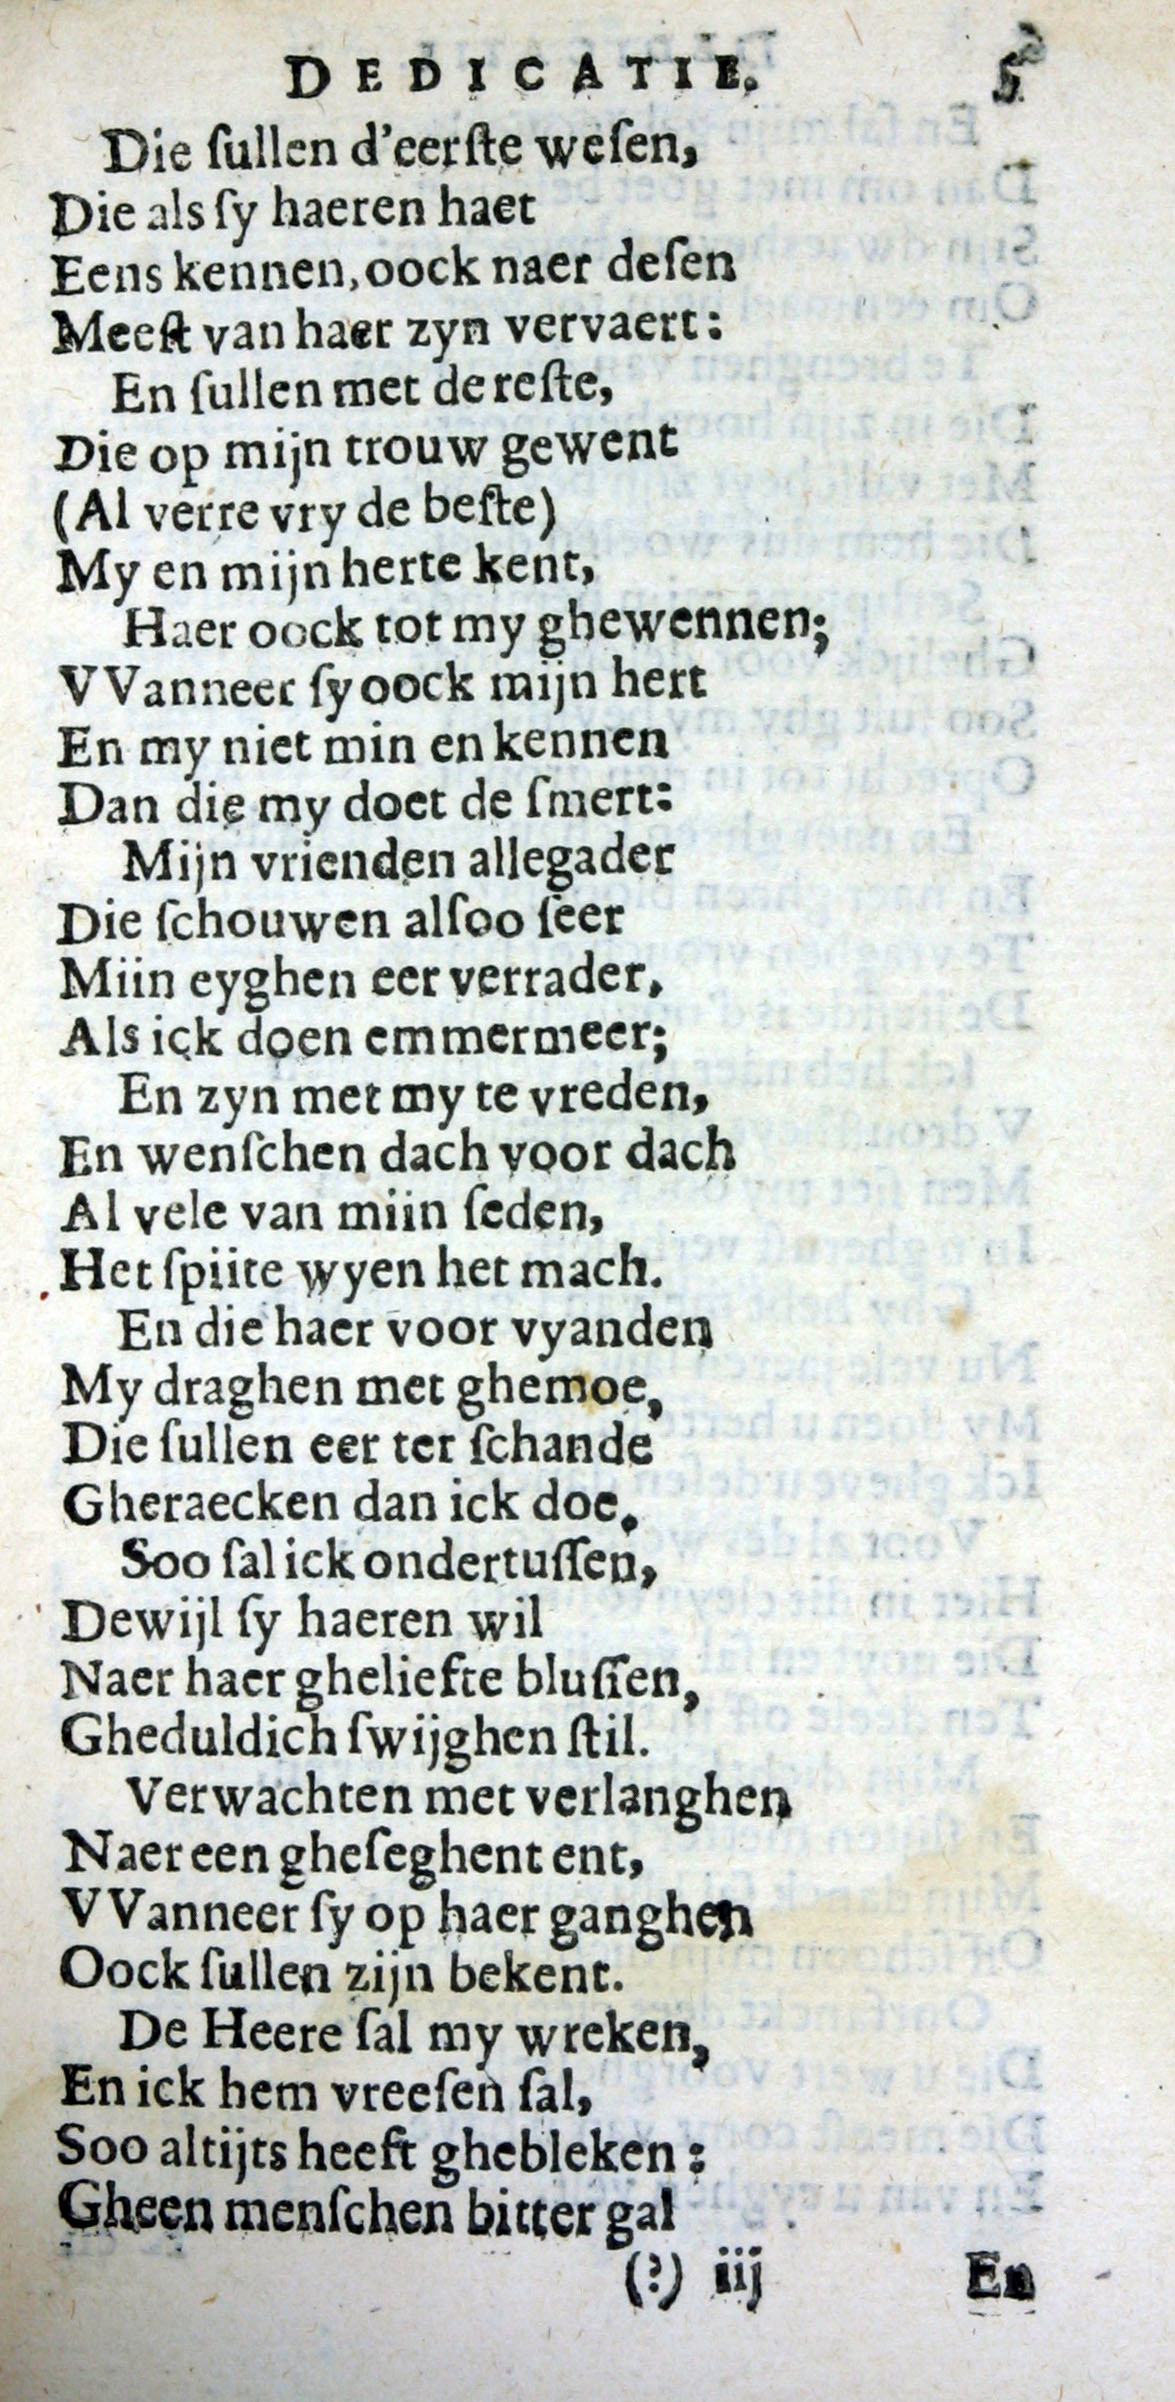 DEDICATIE. 5
Die ſullen d'eerſte weſen,
Die als ſy haeren haet
Eens kennen, oock naer deſen
Meeſt van haer zyn vervaert:
En ſullen met de reſte,
Die op mijn trouw gewent
(Al verre vry de beſte)
My en mijn herte kent,
Haer oock tot my ghewennen;
VVanneer ſy oock mijn hert
En my niet min en kennen
Dan die my doet de ſmert:
Mijn vrienden allegader
Die ſchouwen alſoo ſeer
Miin eyghen eer verrader,
Als ick doen emmermeer;
En zyn met my te vreden,
En wenſchen dach voor dach
Al vele van miin ſeden,
Het ſpiite wyen het mach.
En die haer voor vyanden
My draghen met ghemoe,
Die ſullen eer ter ſchande
Gheraecken dan ick doe.
Soo ſal ick ondertuſſen,
Dewijl ſy haeren wil
Naer haer gheliefte bluſſen,
Gheduldich ſwijghen ſtil.
Verwachten met verlanghen
Naer een gheſeghent ent,
VVanneer ſy op haer ganghen
Oock ſullen zijn bekent.
De Heere ſal my wreken,
En ick hem vreeſen ſal,
Soo altijts heeft ghebleken:
Gheen menſchen bitter gal
(?) iij En